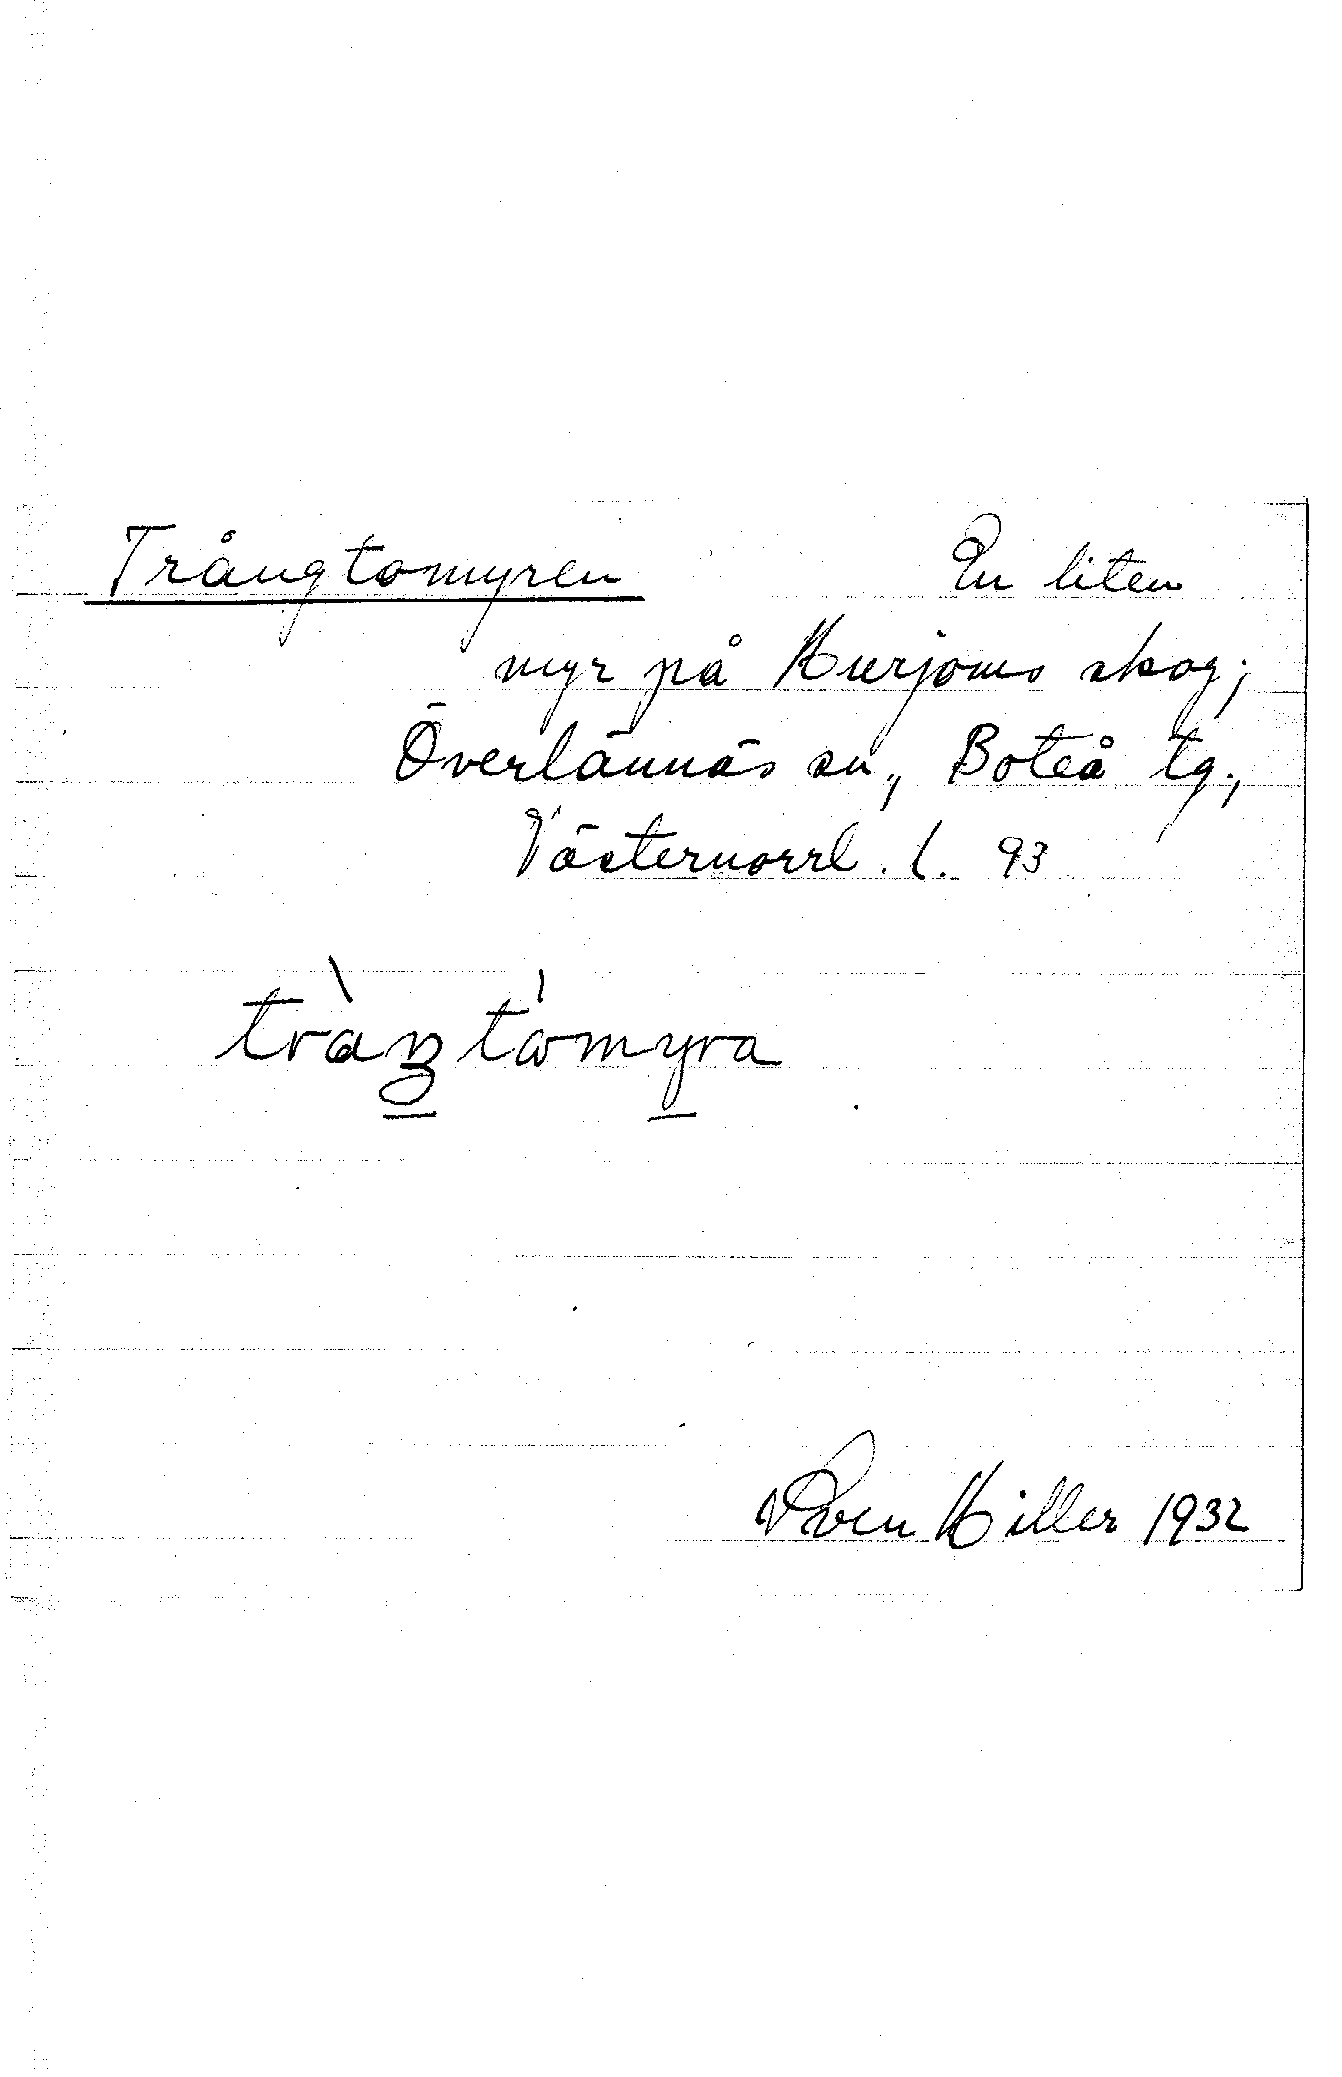 Trångtomyren En liten
myr på Kurjoms skog;
Överlännäs sn., Boteå tg.,
Västernorrl. l. 93
Sven Hiller 1932